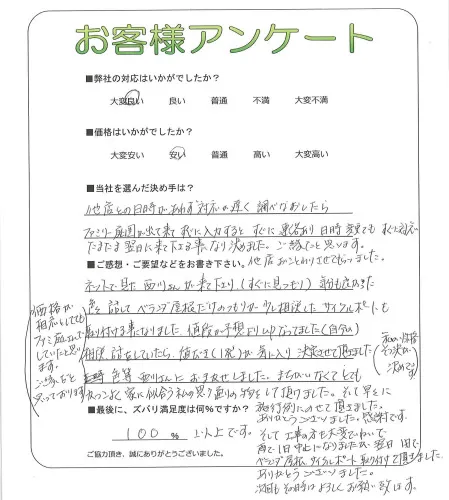 お客様アンケート
■弊社の対応はいかがでしたか?
大変良い 良い 普通 不満 大変不満
■価格はいかがでしたか?
大変安い 安い 普通 高い 大変高い
■当社を選んだ決め手は?
他店との日時があわず対応が遅く調べなおしたら
ファミリー庭園が出て来て入力するとすぐに連絡あり日時変更でもすぐに対応
たまたま翌日に来て下さる事になり決めました。ご縁だと思います。
■ご感想・ご要望などをお書き下さい。他店おことわりさせてもらいました。
ネットで見た西川さんが来て下より(すぐに見つもり)
色々話してベランダ屋根だけのつもりが少し相談したサイクルポートも
取り付ける事になりました 値段が予想より
相談 検討をしていたら 気に入り決定させて頂きました
色等 西川さんにおまかせしました。まちがいなくてとても
かっこよく家に似合う私の思う通りの物をして頂けました。そして早々に
価格が
相応しても
ファミ庭さんに
していたと思い
ます。
ご縁だと
思っております
■最後に、ズバリ満足度は何%ですか?
100 % 以上です。
施行例にのせて頂きました。
ありがとうございました。感謝です。
そして工事の方も大変でしたが
雨で1日中止になりましたが翌日1日で
ベランダ屋根、サイクルポート取り付けて頂きました。
ありがとうございました。
次回もその時はよろしくお願い致します。
ご協力頂き、誠にありがとうございました。